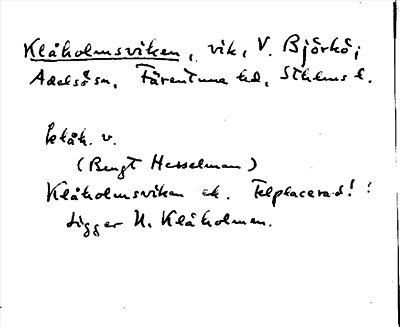 Klåholmsviken, vik, V. Björkö;
Adelsö sn, Färentuna hd, Sthlms l.
klåh. v.
(Bengt Hesselman)
Klåholmsviken ek. Felplacerad!
Ligger N. Klåholmen.